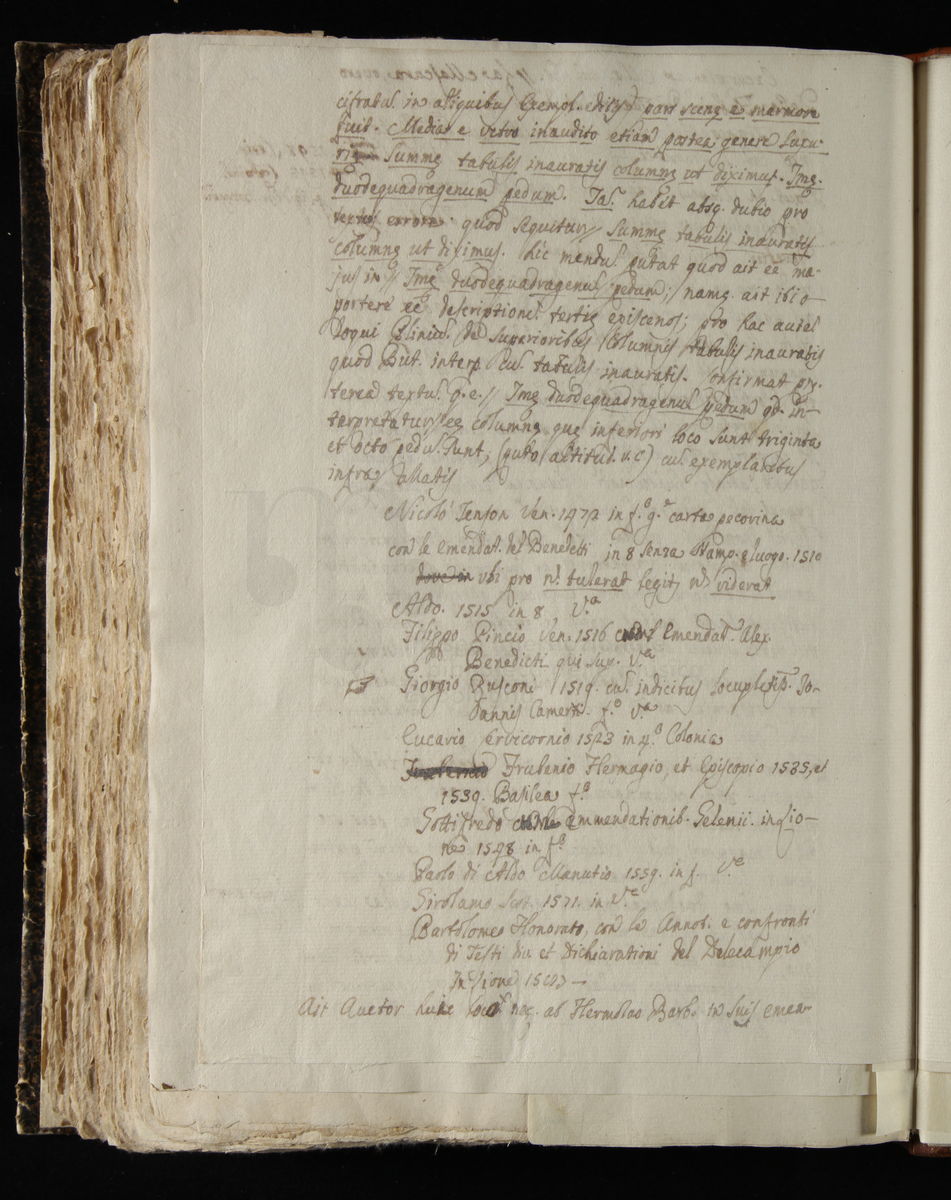 cifratus. in aliquibus exempl. editis pars scenę è marmore
fuit. Media è vitro inaudito etiam postea genere luxu-
rię Summę tabulis inauratis columnę ut diximus. Imę.
duodequadragenum pedum. Ias. habet absq. dubio pro
textus errore quod sequitur// Summę tabulis inauratis
columnę ut diximus. hic mendus putat quod ait eē ma-
jus in // Imę duodequadragenus pedum; namq. ait ibi o-
portere eē descriptiones tertię episcenos; pro hac autes
loqui Plinius. de superioribus Columnis tabulis inauratis
quod But. interp. cus. tabulis inauratis. Confirmat prę-
terea textus q.e. // Imę duodequadragenus pedum qd. in-
terpretatur eę columnę quę inferiori loco sunt triginta
et octo pedus. sunt, (puto altitus. v.c) cus. exemplaribus
infra allatis
Nicolò Jenson Ven. 1472 in f.º g.e carta pecorina
con le emendat. del Benedetti in 8 senza stamp. e luogo. 1510
dove in ubi pro nˡ. tulerat legit nˡ viderat
Aldo. 1515 in 8 V.a
Filippo Pincio Ven. 1516 emendat. Alex.
Benedicti qui sup. V.a
Giorgio Rusconi 1519. cus. indicibus locupletiss. Jo-
annis Camertis. f.º V.a
Eucario Cervicornio 1523 in 4.º Colonia
Frubenio Hermagio, et Episcopio 1535, et
1539. Basilea f.º
Gottifredo emmendationib. Gelenii. in Lio-
ne 1548 in f.º
Paolo di Aldo Manutio 1559. in f. V.a
Girolamo Scot. 1571. in V.a
Bartolomeo Honorato, con le Annot. e confronti
di Testi div. et Dichiarationi del Delecampio
In Lione
Ait Auctor huic hoc. ab Hermolao Barb. in suis emen-